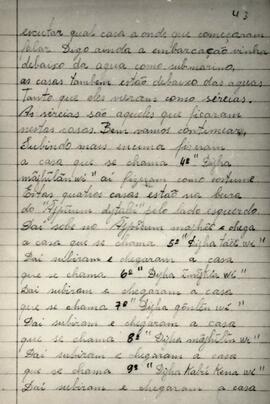 43
escutar qual casa a onde que começaram
falar. Digo ainda a embarcação vinha
debaixo da agua como submarino,
as casas tambem estão debaixo das aguas
tanto que eles viveram como sereias.
As sereias são aqueles que ficaram
nestas casas. Bem vamos continuar,
Subindo mais encima fizeram
a casa que se chama 4ª "Diỹha
wi" ai fizeram como costume
Estas quatros casas estão na beira
do pelo lado esquerdo.
Dai sobe no e chega
a casa que se chama 5ª "Diỹha wi"
Dai subiram e chegaram a casa
que se chama 6ª "Diỹha wi"
Dai subiram e chegaram a casa
que se chama 7ª "Diỹha wi"
Dai subiram e chegaram a casa
que se chama 8ª "Diỹha wi"
Dai subiram e chegaram a casa
que se chama 9ª "Diỹha wi"
Dai subiram e chegaram a casa